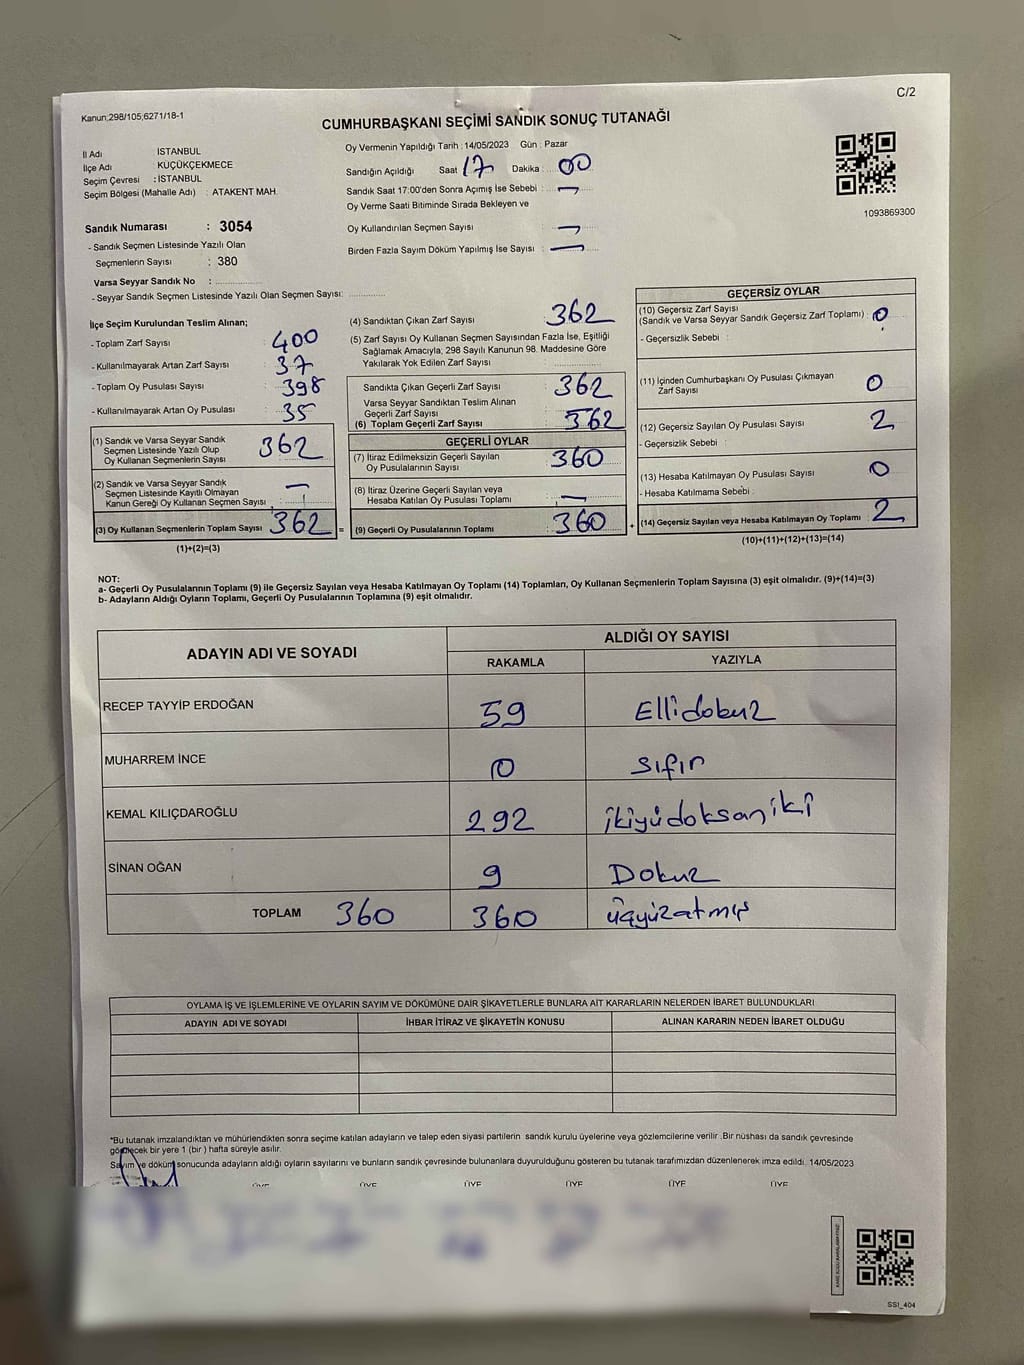 C/2
Kanun:298/105,6271/18-1
CUMHURBAŞKANI SEÇİMİ SANDIK SONUÇ TUTANAĞI
İl Adı İSTANBUL
İlçe Adı KÜÇÜKÇEKMECE
Seçim Çevresi : İSTANBUL
Seçim Bölgesi (Mahalle Adı) : ATAKENT MAH.
Oy Vermenin Yapıldığı Tarih : 14/05/2023 Gün : Pazar
Sandığın Açıldığı Saat 17 Dakika : 00
Sandık Saat 17:00'den Sonra Açımış İse Sebebi : —
Oy Verme Saati Bitiminde Sırada Bekleyen ve
Oy Kullandırılan Seçmen Sayısı —
Birden Fazla Sayım Döküm Yapılmış İse Sayısı : —
1093869300
Sandık Numarası : 3054
- Sandık Seçmen Listesinde Yazılı Olan
Seçmenlerin Sayısı : 380
Varsa Seyyar Sandık No :
- Seyyar Sandık Seçmen Listesinde Yazılı Olan Seçmen Sayısı:
İlçe Seçim Kurulundan Teslim Alınan;
- Toplam Zarf Sayısı : 400
- Kullanılmayarak Artan Zarf Sayısı : 37
- Toplam Oy Pusulası Sayısı : 398
- Kullanılmayarak Artan Oy Pusulası : 35
(1) Sandık ve Varsa Seyyar Sandık
Seçmen Listesinde Yazılı Olup
Oy Kullanan Seçmenlerin Sayısı 362
(2) Sandık ve Varsa Seyyar Sandık
Seçmen Listesinde Kayıtlı Olmayan
Kanun Gereği Oy Kullanan Seçmen Sayısı —
(3) Oy Kullanan Seçmenlerin Toplam Sayısı 362 =
(1)+(2)=(3)
(4) Sandıktan Çıkan Zarf Sayısı : 362
(5) Zarf Sayısı Oy Kullanan Seçmen Sayısından Fazla İse, Eşitliği
Sağlamak Amacıyla, 298 Sayılı Kanunun 98. Maddesine Göre
Yakılarak Yok Edilen Zarf Sayısı :
Sandıkta Çıkan Geçerli Zarf Sayısı 362
Varsa Seyyar Sandıktan Teslim Alınan
Geçerli Zarf Sayısı
(6) Toplam Geçerli Zarf Sayısı : 362
GEÇERLİ OYLAR
(7) İtiraz Edilmeksizin Geçerli Sayılan
Oy Pusulalarının Sayısı : 360
(8) İtiraz Üzerine Geçerli Sayılan veya
Hesaba Katılan Oy Pusulası Toplamı : —
(9) Geçerli Oy Pusulalarının Toplamı : 360 +
GEÇERSİZ OYLAR
(10) Geçersiz Zarf Sayısı
(Sandık ve Varsa Seyyar Sandık Geçersiz Zarf Toplamı) : 0
- Geçersizlik Sebebi :
(11) İçinden Cumhurbaşkanı Oy Pusulası Çıkmayan
Zarf Sayısı 0
(12) Geçersiz Sayılan Oy Pusulası Sayısı 2
- Geçersizlik Sebebi :
(13) Hesaba Katılmayan Oy Pusulası Sayısı 0
- Hesaba Katılmama Sebebi :
(14) Geçersiz Sayılan veya Hesaba Katılmayan Oy Toplamı 2
(10)+(11)+(12)+(13)=(14)
NOT:
a- Geçerli Oy Pusulalarının Toplamı (9) ile Geçersiz Sayılan veya Hesaba Katılmayan Oy Toplamı (14) Toplamları, Oy Kullanan Seçmenlerin Toplam Sayısına (3) eşit olmalıdır. (9)+(14)=(3)
b- Adayların Aldığı Oyların Toplamı, Geçerli Oy Pusulalarının Toplamına (9) eşit olmalıdır.
ADAYIN ADI VE SOYADI ALDIĞI OY SAYISI
RAKAMLA YAZIYLA
RECEP TAYYİP ERDOĞAN 59 Ellidokuz
MUHARREM İNCE 0 sıfır
KEMAL KILIÇDAROĞLU 292 ikiyüdoksaniki
SİNAN OĞAN 9 Dokuz
TOPLAM 360 360 üçyüzatmış
OYLAMA İŞ VE İŞLEMLERİNE VE OYLARIN SAYIM VE DÖKÜMÜNE DAİR ŞİKAYETLERLE BUNLARA AİT KARARLARIN NELERDEN İBARET BULUNDUKLARI
ADAYIN ADI VE SOYADI İHBAR İTİRAZ VE ŞİKAYETİN KONUSU ALINAN KARARIN NEDEN İBARET OLDUĞU
*Bu tutanak imzalandıktan ve mühürlendikten sonra seçime katılan adayların ve talep eden siyasi partilerin sandık kurulu üyelerine veya gözlemcilerine verilir .Bir nüshası da sandık çevresinde
görülecek bir yere 1 (bir ) hafta süreyle asılır.
Sayım ve döküm sonucunda adayların aldığı oyların sayılarını ve bunların sandık çevresinde bulunanlara duyurulduğunu gösteren bu tutanak tarafımızdan düzenlenerek imza edildi. 14/05/2023
ÜYE ÜYE ÜYE ÜYE ÜYE ÜYE
SS1_404